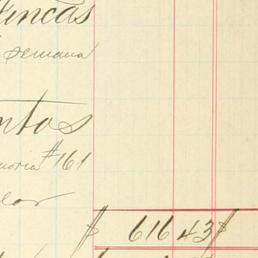 fincas
semana
ntos
moria #161
$ 616 43 $